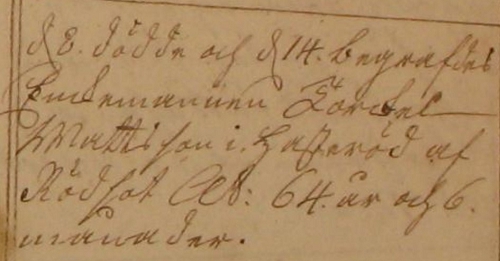 d 8. dödde och d 14. begrafdes
Enckemannen Torckel
Mattisson i Hasseröd af
Rödsot Æt: 64. år och 6.
månader.